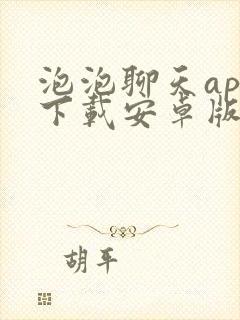 泡泡聊天ap
下载安卓版
胡平